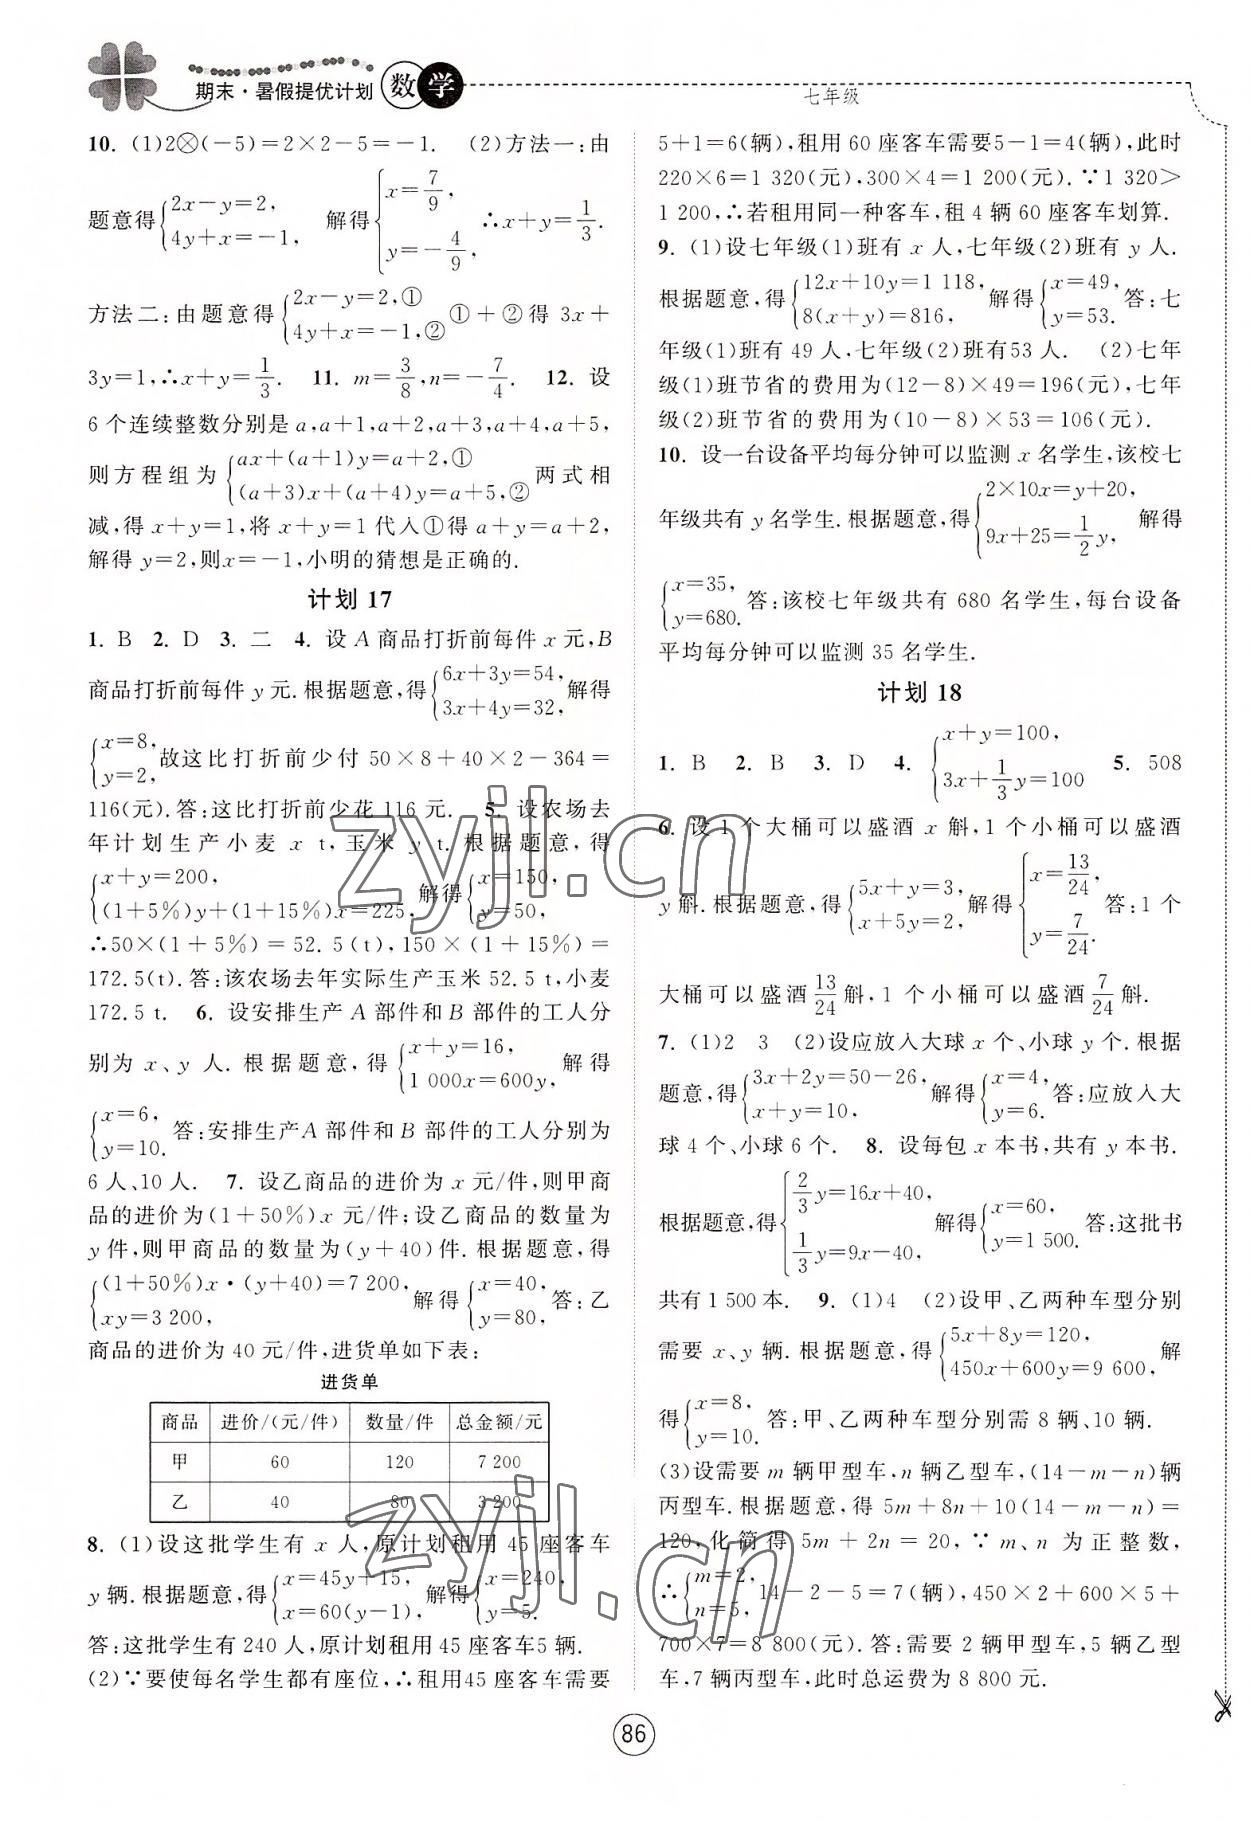 期末·暑假提优计划 数学
七年级
10. (1)2⊗(-5)=2×2-5=-1. (2)方法一:由
题意得{2x-y=2, 4y+x=-1, 解得{x=7/9, y=-4/9, ∴x+y=1/3.
方法二:由题意得{2x-y=2,① 4y+x=-1,② ①+②得 3x+
3y=1,∴x+y=1/3. 11. m=3/8,n=-7/4. 12. 设
6个连续整数分别是a,a+1,a+2,a+3,a+4,a+5,
则方程组为{ax+(a+1)y=a+2,① (a+3)x+(a+4)y=a+5,② 两式相
减,得x+y=1,将x+y=1代入①得a+y=a+2,
解得y=2,则x=-1,小明的猜想是正确的.
计划 17
1. B 2. D 3. 二 4. 设A商品打折前每件x元,B
商品打折前每件y元.根据题意,得{6x+3y=54, 3x+4y=32, 解得
{x=8, y=2, 故这比打折前少付50×8+40×2-364=
116(元).答:这比打折前少花116元. 5. 设农场去
年计划生产小麦 x t,玉米 y t.根据题意,得
{x+y=200, (1+5%)y+(1+15%)x=225, 解得{x=150, y=50,
∴50×(1+5%)=52.5(t),150×(1+15%)=
172.5(t).答:该农场去年实际生产玉米52.5 t,小麦
172.5 t. 6. 设安排生产A部件和B部件的工人分
别为x、y人.根据题意,得{x+y=16, 1 000x=600y, 解得
{x=6, y=10. 答:安排生产A部件和B部件的工人分别为
6人、10人. 7. 设乙商品的进价为x元/件,则甲商
品的进价为(1+50%)x元/件;设乙商品的数量为
y件,则甲商品的数量为(y+40)件.根据题意,得
{(1+50%)x·(y+40)=7 200, xy=3 200, 解得{x=40, y=80, 答:乙
商品的进价为40元/件,进货单如下表:
进货单
商品 进价/(元/件) 数量/件 总金额/元
甲 60 120 7 200
乙 40 80 3 200
8. (1)设这批学生有x人,原计划租用45座客车
y辆.根据题意,得{x=45y+15, x=60(y-1), 解得{x=240, y=5.
答:这批学生有240人,原计划租用45座客车5辆.
(2)∵要使每名学生都有座位,∴租用45座客车需要
5+1=6(辆),租用60座客车需要5-1=4(辆),此时
220×6=1 320(元),300×4=1 200(元).∵1 320>
1 200,∴若租用同一种客车,租4辆60座客车划算.
9. (1)设七年级(1)班有x人,七年级(2)班有y人.
根据题意,得{12x+10y=1 118, 8(x+y)=816, 解得{x=49, y=53. 答:七
年级(1)班有49人,七年级(2)班有53人. (2)七年
级(1)班节省的费用为(12-8)×49=196(元),七年
级(2)班节省的费用为(10-8)×53=106(元).
10. 设一台设备平均每分钟可以监测x名学生,该校七
年级共有y名学生.根据题意,得{2×10x=y+20, 9x+25=1/2y, 解得
{x=35, y=680. 答:该校七年级共有680名学生,每台设备
平均每分钟可以监测35名学生.
计划 18
1. B 2. B 3. D 4. {x+y=100, 3x+1/3y=100 5. 508
6. 设1个大桶可以盛酒x斛,1个小桶可以盛酒
y斛.根据题意,得{5x+y=3, x+5y=2, 解得{x=13/24, y=7/24. 答:1个
大桶可以盛酒13/24斛,1个小桶可以盛酒7/24斛.
7. (1)2 3 (2)设应放入大球x个、小球y个.根据
题意,得{3x+2y=50-26, x+y=10, 解得{x=4, y=6. 答:应放入大
球4个、小球6个. 8. 设每包x本书,共有y本书.
根据题意,得{2/3y=16x+40, 1/3y=9x-40, 解得{x=60, y=1 500. 答:这批书
共有1 500本. 9. (1)4 (2)设甲、乙两种车型分别
需要x、y辆.根据题意,得{5x+8y=120, 450x+600y=9 600, 解
得{x=8, y=10. 答:甲、乙两种车型分别需8辆、10辆.
(3)设需要m辆甲型车,n辆乙型车,(14-m-n)辆
丙型车.根据题意,得5m+8n+10(14-m-n)=
120,化简得5m+2n=20,∵m、n为正整数,
∴{m=2, n=5, 14-2-5=7(辆),450×2+600×5+
700×7=8 800(元).答:需要2辆甲型车,5辆乙型
车,7辆丙型车,此时总运费为8 800元.
zyjl.cn
zyjl.cn
86